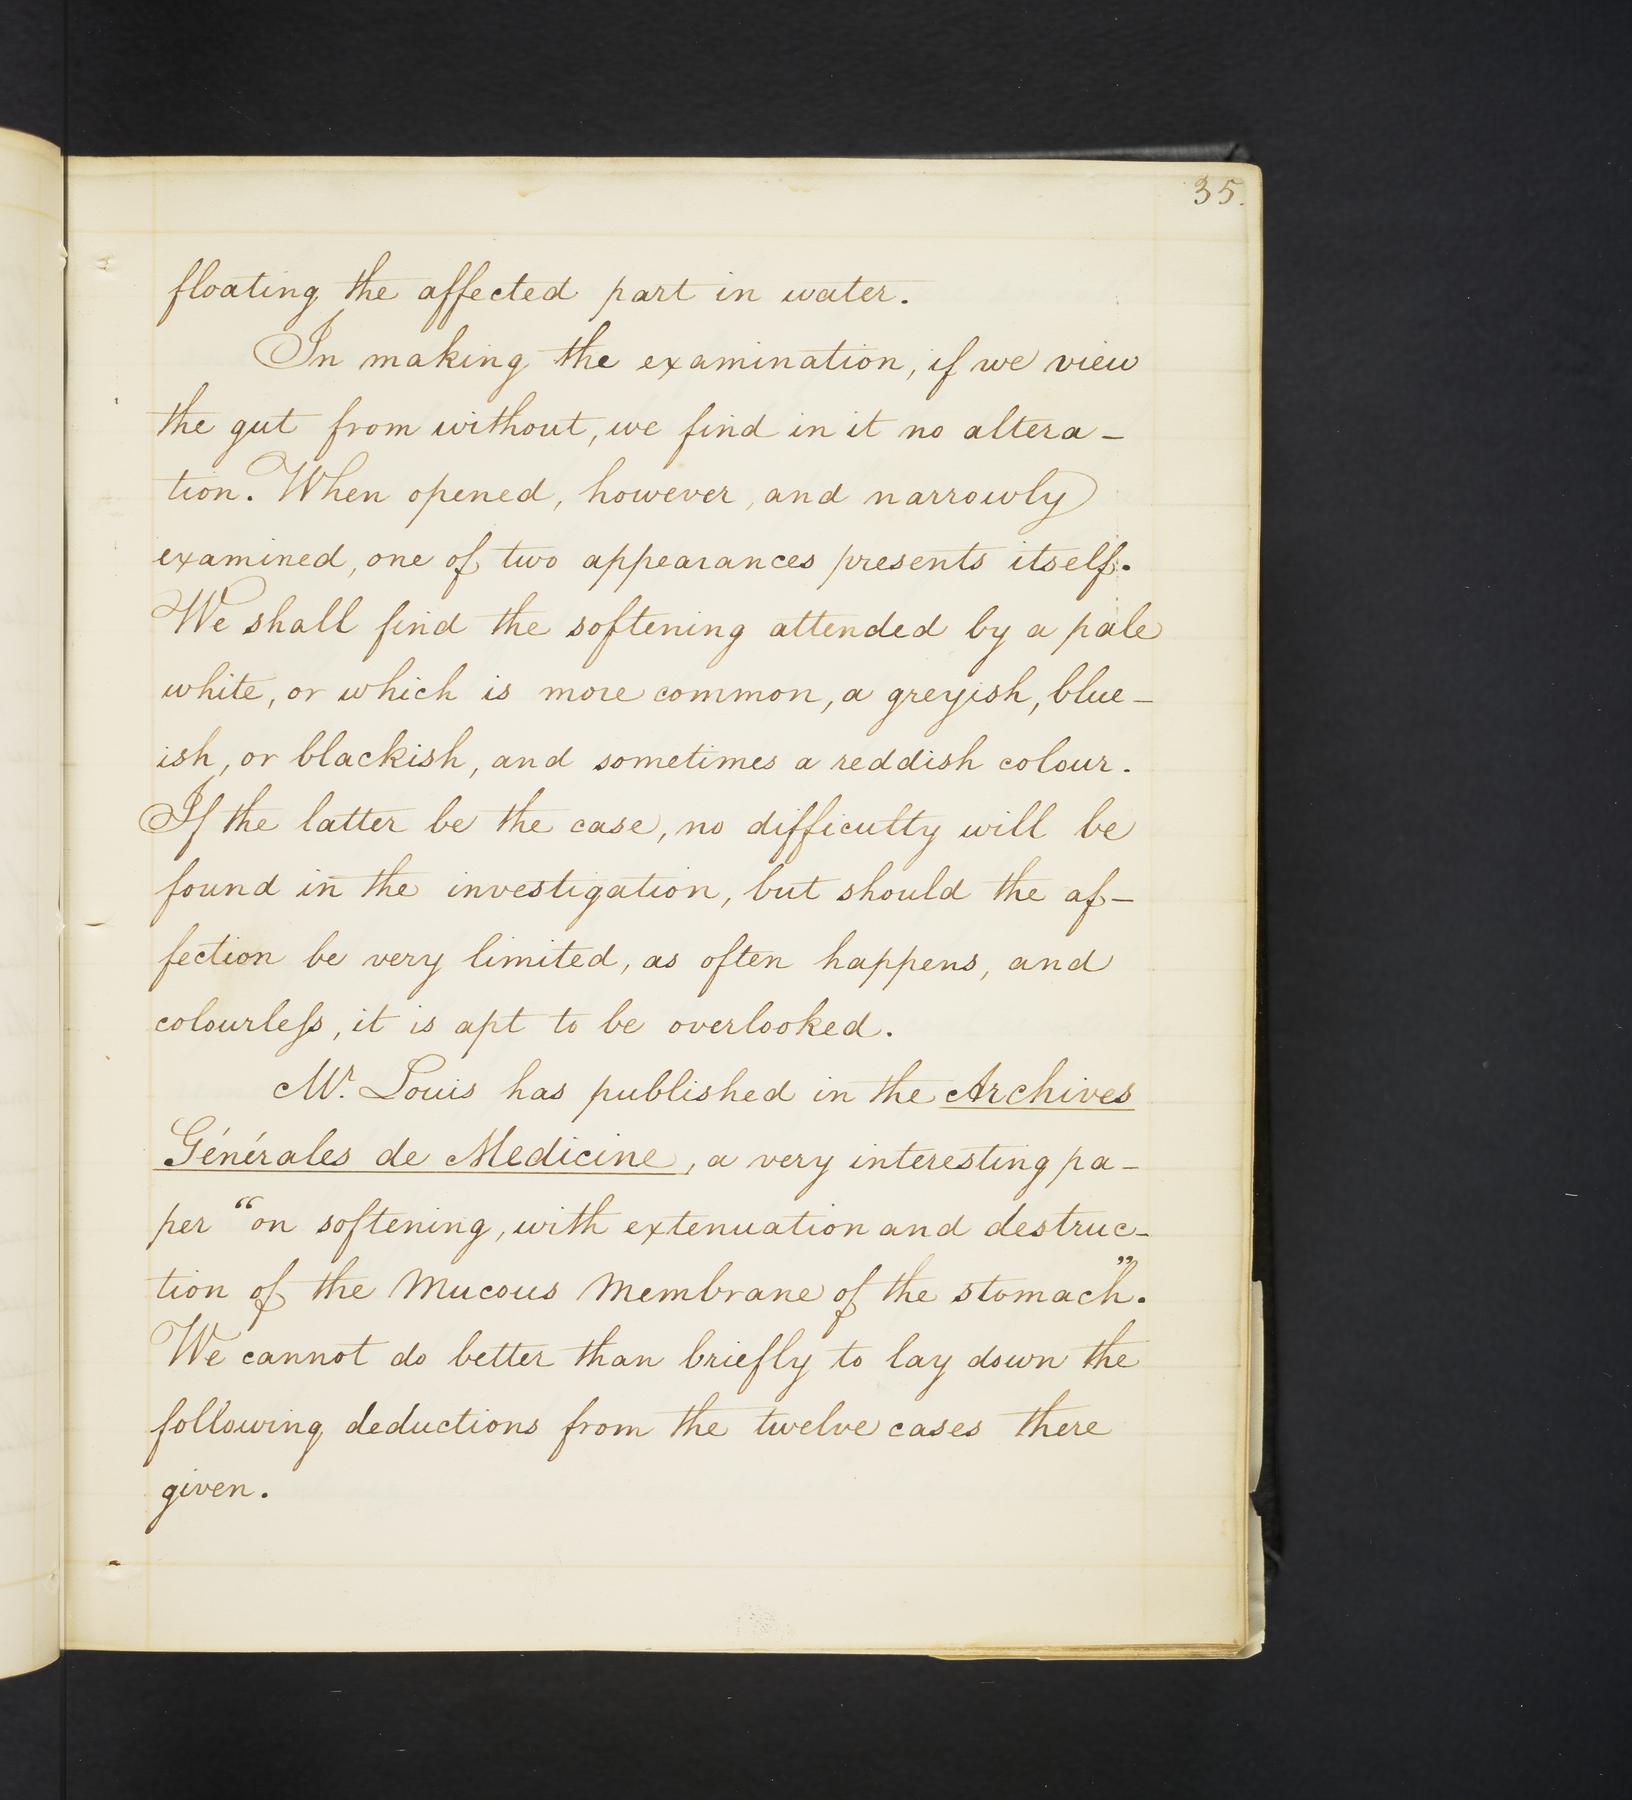 35.
floating the affected part in water.
In making the examination, if we view
the gut from without, we find in it no altera-
tion. When opened, however, and narrowly
examined, one of two appearances presents itself.
We shall find the softening attended by a pale
white, or which is more common, a greyish, blue-
ish, or blackish, and sometimes a reddish colour.
If the latter be the case, no difficulty will be
found in the investigation, but should the af-
fection be very limited, as often happens, and
colourless, it is apt to be overlooked.
Mr. Louis has published in the Archives
Générales de Medicine, a very interesting pa-
per "on softening, with extenuation and destruc-
tion of the Mucous Membrane of the stomach".
We cannot do better than briefly to lay down the
following deductions from the twelve cases there
given.